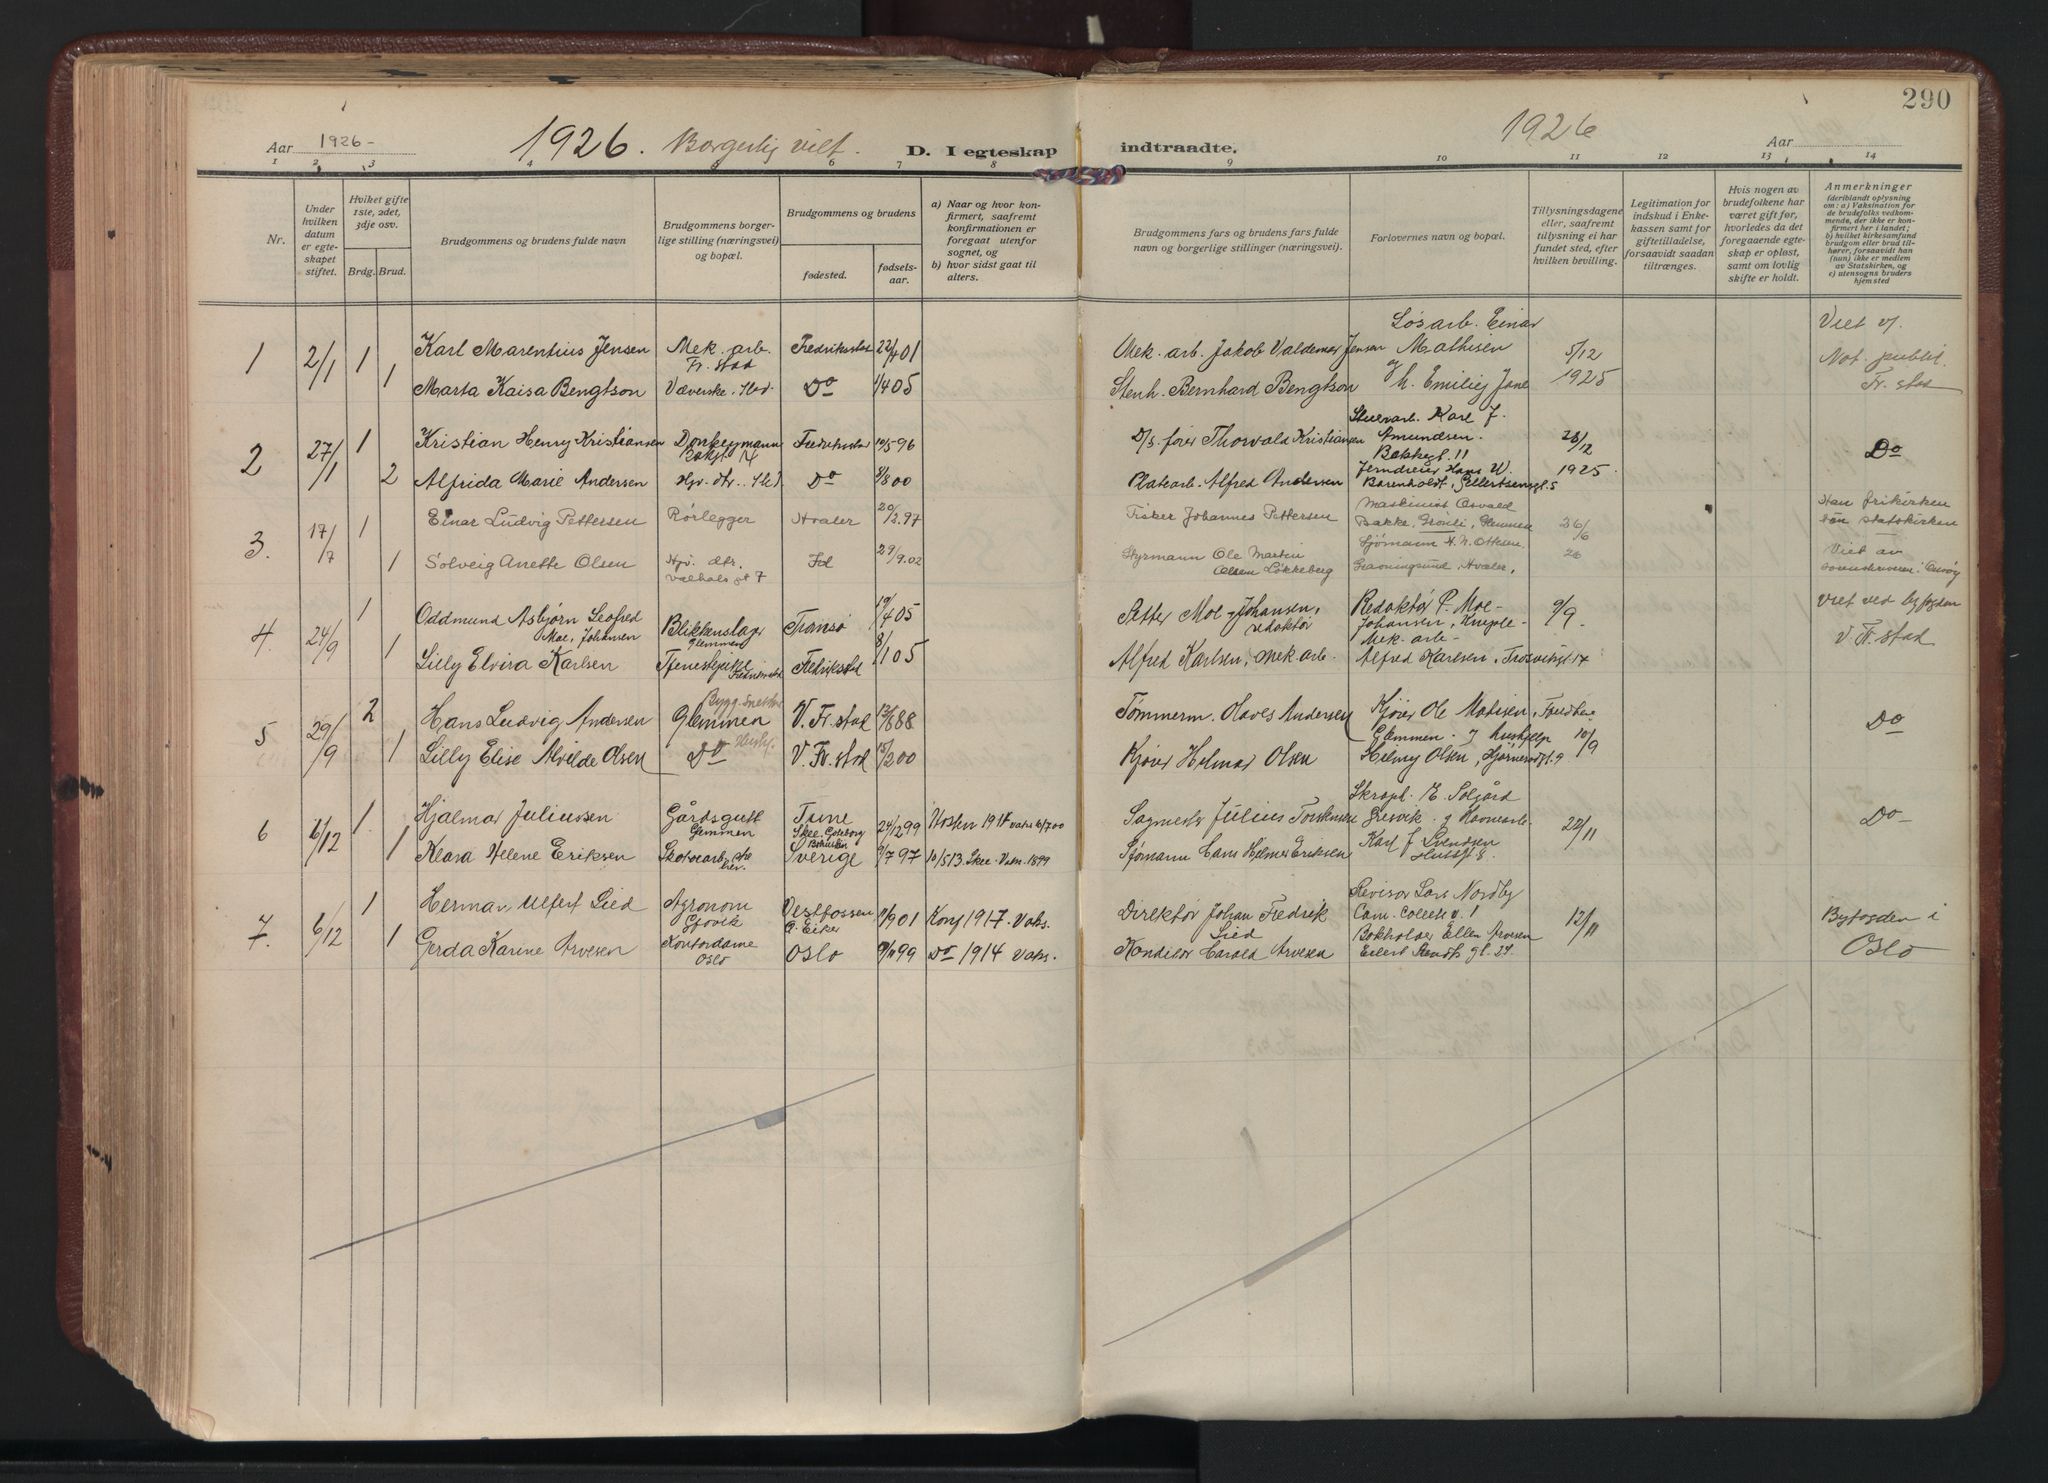 290
Aar 1926-
1926. Borgerlig viet.
D. I egteskap
indtraadte.
1926
Aar
1 2 3 4 6 7 8 9 10 11 12 13 14
Nr.
Under hvilken datum er egteskapet stiftet.
Hviket gifte 1ste, 2det, 3dje osv.
Brdg. Brud.
Brudgommens og brudens fulde navn
Brudgommens borgerlige stilling (næringsvei) og bopæl.
Brudgommens og brudens
fødested.
fødselsaar.
a) Naar og hvor konfirmert, saafremt konfirmationen er foregaat utenfor sognet, og
b) hvor sidst gaat til alters.
Brudgommens fars og brudens fars fulde navn og borgerlige stillinger (næringsvei).
Forlovernes navn og bopæl.
Tillysningsdagene eller, saafremt tillysning ei har fundet sted, efter hvilken bevilling.
Legitimation for indskud i Enkekassen samt for giftetilladelse, forsaavidt saadan tiltrænges.
Hvis nogen av brudefolkene har været gift før, hvorledes da det foregaaende egteskap er opløst, samt om lovlig skifte er holdt.
Anmerkninger
(deriblandt oplysning om: a) Vaksination for de brudefolks vedkommende, der ikke er konfirmert her i landet; b) hvilket kirkesamfund brudgom eller brud tilhører, forsaavidt han (hun) ikke er medlem av Statskirken, og c) utensogns bruders hjemsted
1 2/1 1 Karl Marentius Jensen Mek. arb. Fr. stad Fredrikstad 22/4 01 Mek. arb. Jakob Valdemar Jensen Løsarb. Einar Mathisen 5/12 Viet v/ Not. publit. Fr. stad
1 Marta Kaisa Bengtson Væverske. Do 1/4 05 Stenh. Bernhard Bengtson og h. Emilie Jane 1925
2 27/1 1 Kristian Henry Kristiansen Donkeymann Fredrikstad 10/5 96 D/s. fører Thorvald Kristiansen Karl J. Amundsen. Bakkegt. 11 28/12 Do
2 Alfrida Marie Andersen Hjv. dtr. Do 8/8 00 Platearb. Alfred Andersen Jerndreier Hans W. Barenholdt, Gellertsensgt. 5 1925.
3. 17/7 1 Einar Ludvig Pettersen Rørlegger Hvaler 20/2. 97 Fisker Johannes Pettersen Maskinist Osvald Bakke, Gronli, Glemmen 26/6 Han frikirken hun statskirken
1 Solveig Anette Olsen Hjv. dtr. Valhals gt 7 Id 29/9. 02 Styrmann Ole Martin Olsen Løkkeberg Sjømann H. N. Ottesen. Gravningsund, Hvaler, 26 Viet av sorenskriveren i Onsøy
4. 24/9 1 Oddmund Asbjørn Leofred Moe, Johansen Blikkenslager Glemmen Tromsø 19/4 05 Petter Moe Johansen, redaktør Redaktør P. Moe-Johansen, 9/9. Viet ved byfogden
1 Lilly Elvira Karlsen Tjenestepike Fredrikstad Fredrikstad 8/1 05 Alfred Karlsen, mek arb. Mek. arb- Alfred Karlsen, Trosvikgt. 17 V. Fr. stad
5 29/9 2 Hans Ludvig Andersen Bygg. snekker Glemmen V. Fr. stad 12/8 88 Tømmerm. Olaves Andersen Kjører Ole Matisen, Glemmen. og hushjelp 10/9 Do
1 Lilly Elise Alvilde Olsen Do V. Fr. stad 15/2 00 Kjører Helmar Olsen Helmy Olsen,
6 6/12 1 Hjalmar Juliussen Gårdsgutt Glemmen Tune 24/12 99 Høsten 1914 vaks 6/7 00 Sagmester Julius Torkensen Skrapl. E. Solgård Gresvik. og Havnearb. 22/11 Do-
1 Klara Helene Eriksen Skotøiarb. Skee. Göteborg Bohuslän Sverige 9/7 97 10/5 13. Skee. Vaks. 1899 Sjømann Hans Helmer Eriksen Karl J. Svendsen
7. 6/12 1 Herman Ulfert Lied Agronom Gjøvik Vestfossen Ø. Eiker 11/9 01 Konf 1917. Vaks. Direktør Johan Fredrik Lied Revisor Lars Nordby Cam. Collets v. 1 12/11 Byfogden i
1 Gerda Karine Arvesen Kontordame Oslo Oslo 9/11 99 Do 1914 Vaks. Konditor Harald Arvesen Bokholder Ellen Arvesen Eilert Sundts gt. 27. Oslo